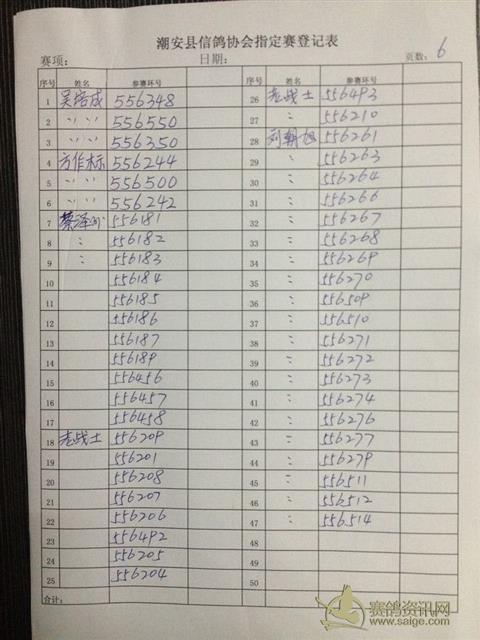 潮安县信鸽协会指定赛登记表
赛项: 日期: 页数: 6
序号 姓名 参赛环号 序号 姓名 参赛环号
1 吴培成 556348 26 老战士 556493
2 〃 〃 556550 27 〃 556210
3 〃 〃 556350 28 刘朝旭 556261
4 方作标 556244 29 〃 556263
5 〃 〃 556500 30 〃 556264
6 〃 〃 556242 31 〃 556266
7 蔡泽 556181 32 〃 556267
8 〃 556182 33 〃 556268
9 〃 556183 34 〃 556269
10 556184 35 〃 556270
11 556185 36 〃 556509
12 556186 37 〃 556510
13 556187 38 〃 556271
14 556189 39 〃 556272
15 556456 40 〃 556273
16 556457 41 〃 556274
17 556458 42 〃 556276
18 老战士 556209 43 〃 556277
19 556201 44 〃 556279
20 556208 45 〃 556511
21 556207 46 〃 556512
22 556206 47 〃 556514
23 556492 48
24 556205 49
25 556204 50
合计:
赛鸽资讯网
www.saige.com